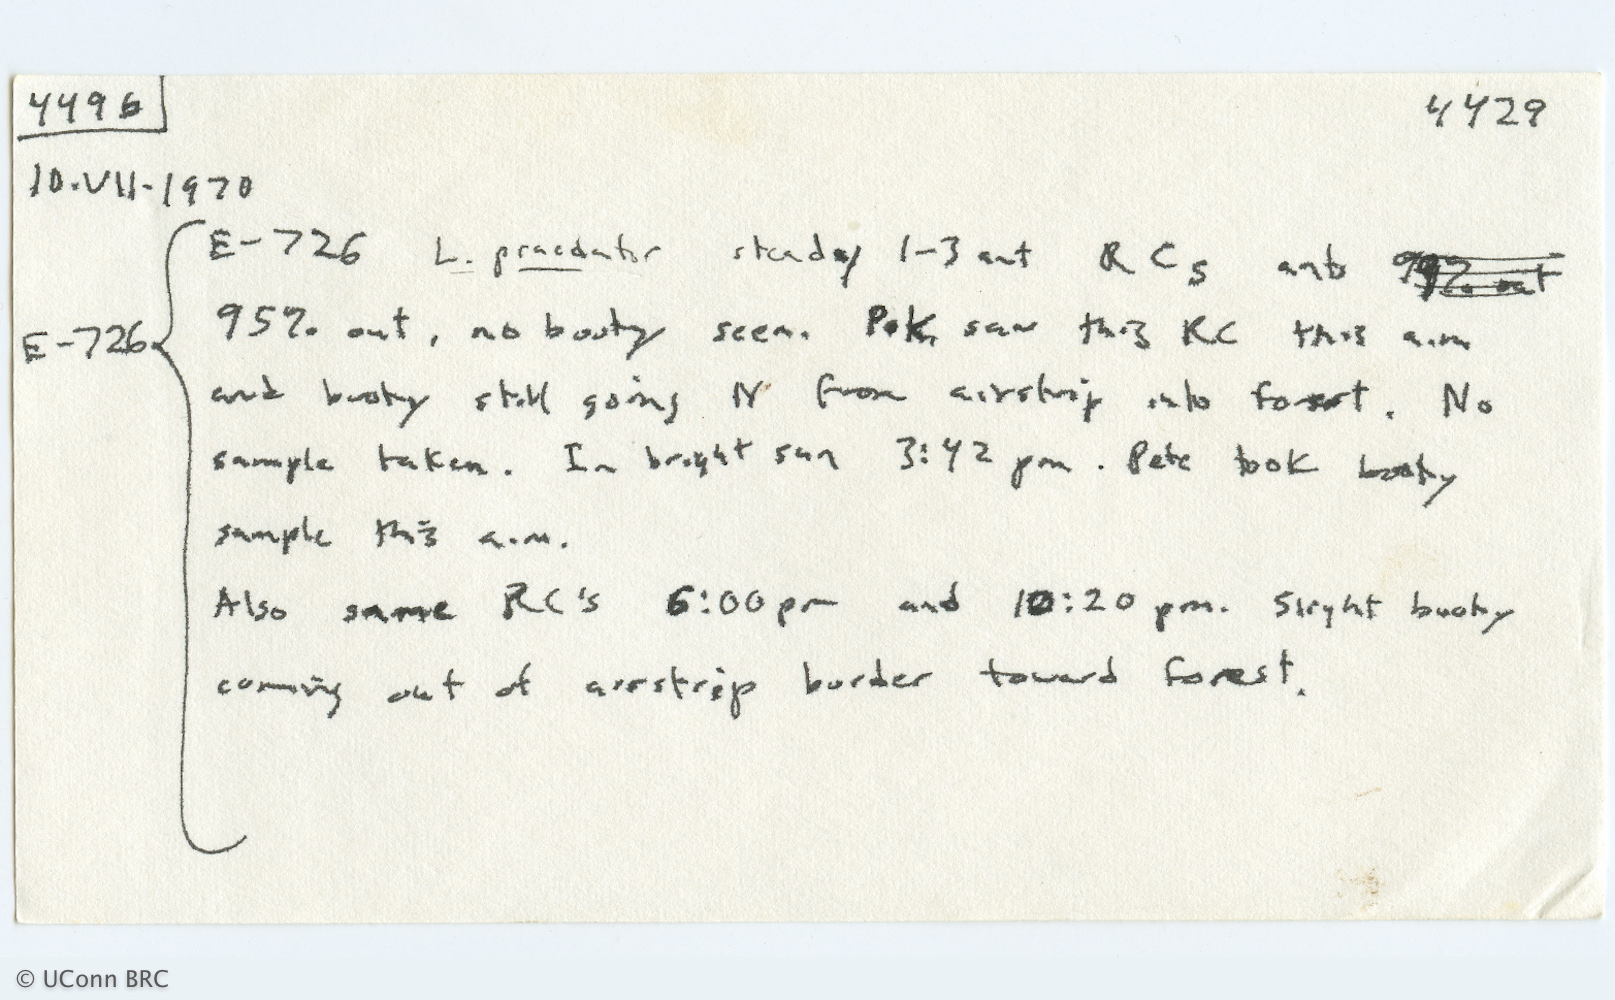 4496
4429
10.VII-1970
E-726 L. praedator steady 1-3 ant RCs ants 99% out
E-726
95% out, no booty seen. P.K. saw this RC this a.m
and booty still going N from airstrip into forest. No
sample taken. In bright sun 3:42 pm. Pete took booty
sample this a.m.
Also same RC's 6:00 pm and 10:20 pm. Slight booty
coming out of airstrip border toward forest.
© UConn BRC